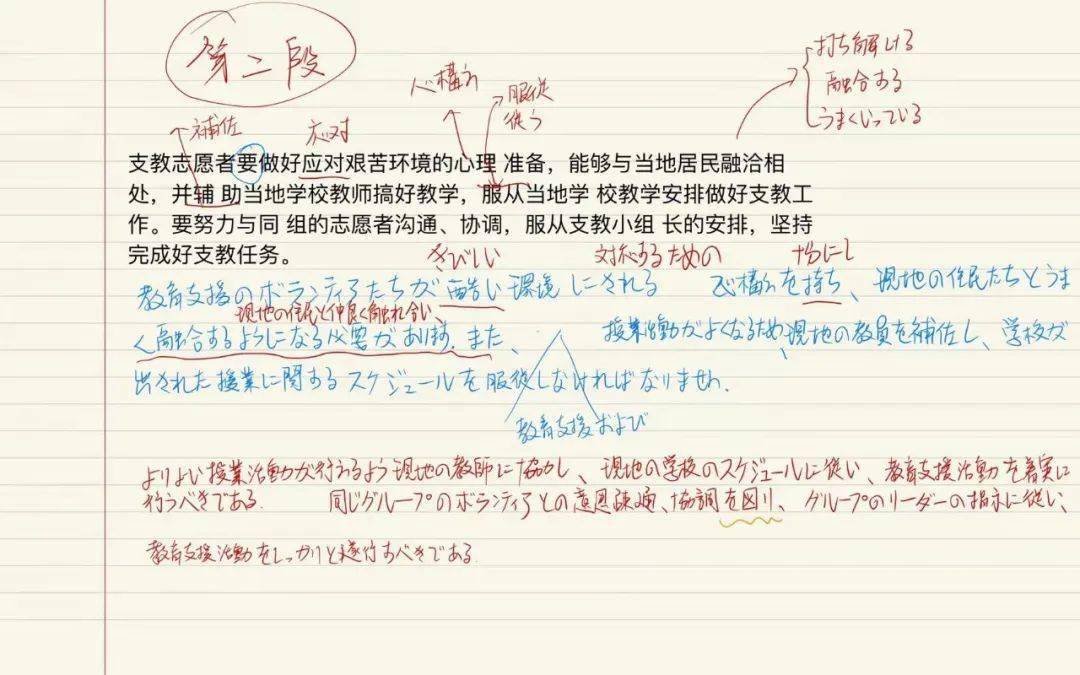 第二段
打ち解ける
心構え
服従
融合する
従う
うまくいっている
補佐
応対
支教志愿者要做好应对艰苦环境的心理 准备，能够与当地居民融洽相
处，并辅 助当地学校教师搞好教学，服从当地学 校教学安排做好支教工
作。要努力与同 组的志愿者沟通、协调，服从支教小组 长的安排，坚持
完成好支教任务。
きびしい 対応するための 十分にし
教育支援のボランティアたちが酷い環境にされる 心構えを持ち、現地の住民たちとうま
現地の住民と仲良く触れ合い、
く融合するようになる必要があります.また、 授業活動がよくなるため、現地の教員を補佐し、学校が
出された授業に関するスケジュールを服従しなければなりません.
教育支援および
よりよい授業活動が行えるよう現地の教師に協力し、現地の学校のスケジュールに従い、教育支援活動を着実に
行うべきである. 同じグループのボランティアとの意思疎通、協調を図り、グループのリーダーの指示に従い、
教育支援活動をしっかりと遂行すべきである.